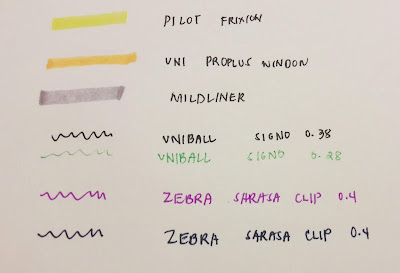 PILOT FRIXION
UNI PROPUS WINDOW
MILDLINER
UNIBALL SIGNO 0.38
UNIBALL SIGNO 0.28
ZEBRA SARASA CLIP 0.4
ZEBRA SARASA CLIP 0.4